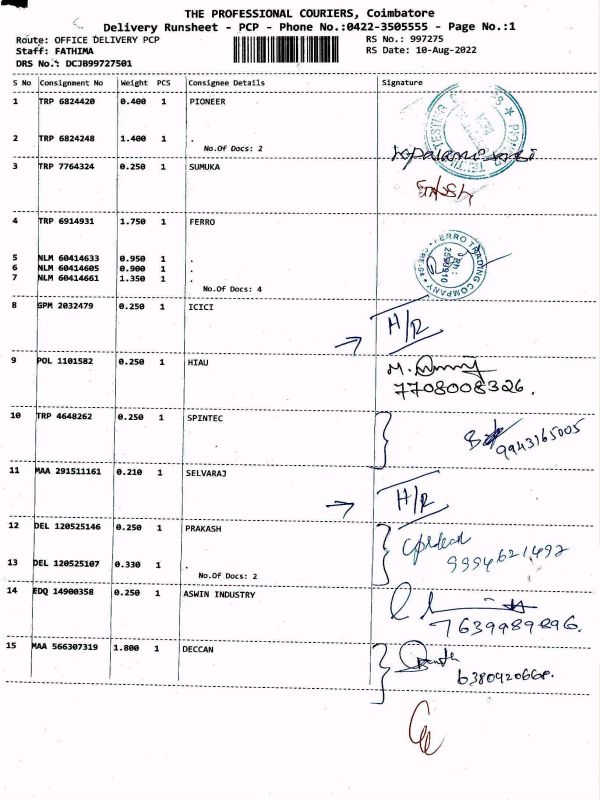 THE PROFESSIONAL COURIERS, Coimbatore
Delivery Runsheet - PCP - Phone No.:0422-3505555 - Page No.:1
Route: OFFICE DELIVERY PCP RS No.: 997275
Staff: FATHIMA RS Date: 10-Aug-2022
DRS No.: DCJB99727501
S No Consignment No Weight PCS Consignee Details Signature
1 TRP 6824420 0.400 1 PIONEER
2 TRP 6824248 1.400 1 .
No.Of Docs: 2
3 TRP 7764324 0.250 1 SUMUKA
4 TRP 6914931 1.750 1 FERRO
FERRO TRADING COMPANY
5 NLM 60414633 0.950 1 .
6 NLM 60414605 0.900 1 .
7 NLM 60414661 1.350 1 .
No.Of Docs: 4
8 GPM 2032479 0.250 1 ICICI
H/R
9 POL 1101582 0.250 1 HIAU
7708008326.
10 TRP 4648262 0.250 1 SPINTEC
9943165005
11 MAA 291511161 0.210 1 SELVARAJ
H/R
12 DEL 120525146 0.250 1 PRAKASH
9994621492
13 DEL 120525107 0.330 1 .
No.Of Docs: 2
14 EDQ 14900358 0.250 1 ASWIN INDUSTRY
7639989896.
15 MAA 566307319 1.800 1 DECCAN
6380920668.